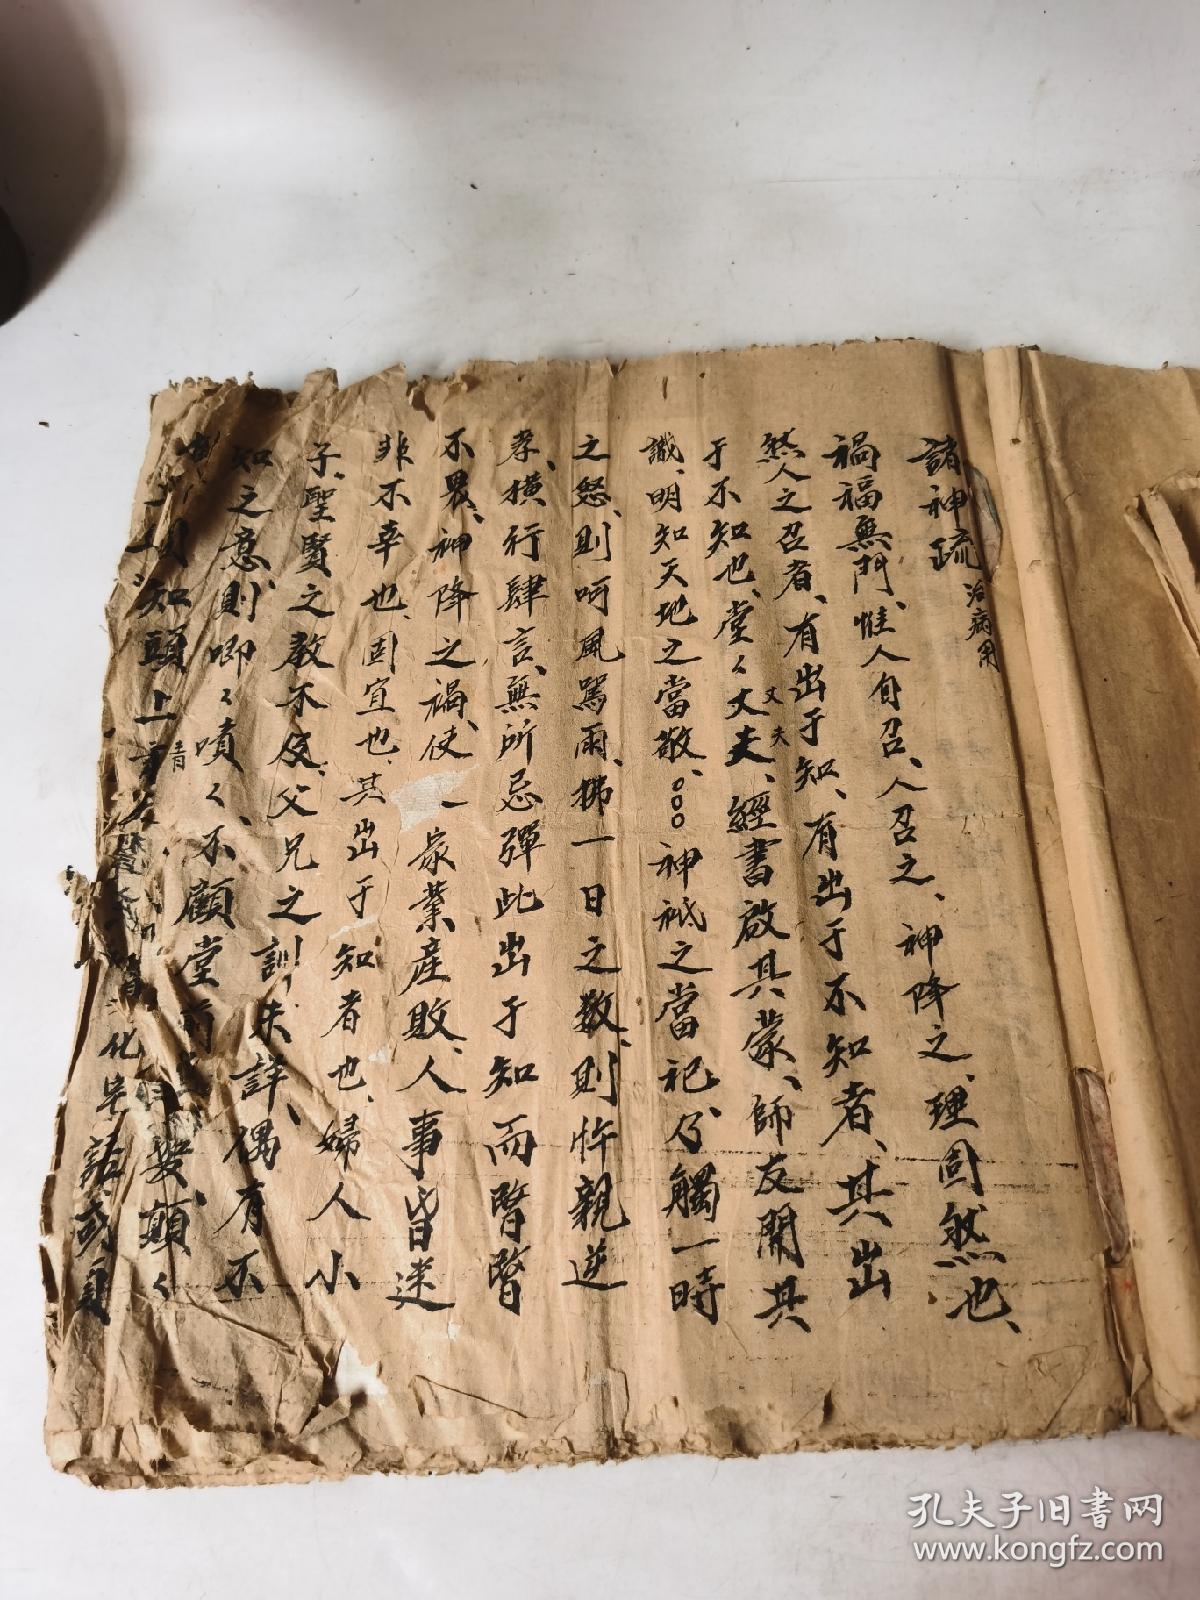 諸神疏 治病用
禍福無門、惟人自召、人召之、神降之、理固然也、
然人之召者、有出于知、有出于不知者、其出
于不知也、堂〻丈夫、經書啟其蒙、師友開其
丈夫
識、明知天地之當敬、神祗之當祀、乃觸一時
之怒、則呵風罵雨、拂一日之數、則忤親逆
孝、横行肆言、無所忌彈此出于知而瞥瞥
不畏、神降之禍、使一家業産敗、人事皆迷
非不幸也、固宜也、其出于知者也、婦人小
子、聖賢之教不及、父兄之訓未詳、偶有不
知之意、則唧〻嘖〻、不顧堂前
知頭上
顛〻
孔夫子旧书网
www.kongfz.com